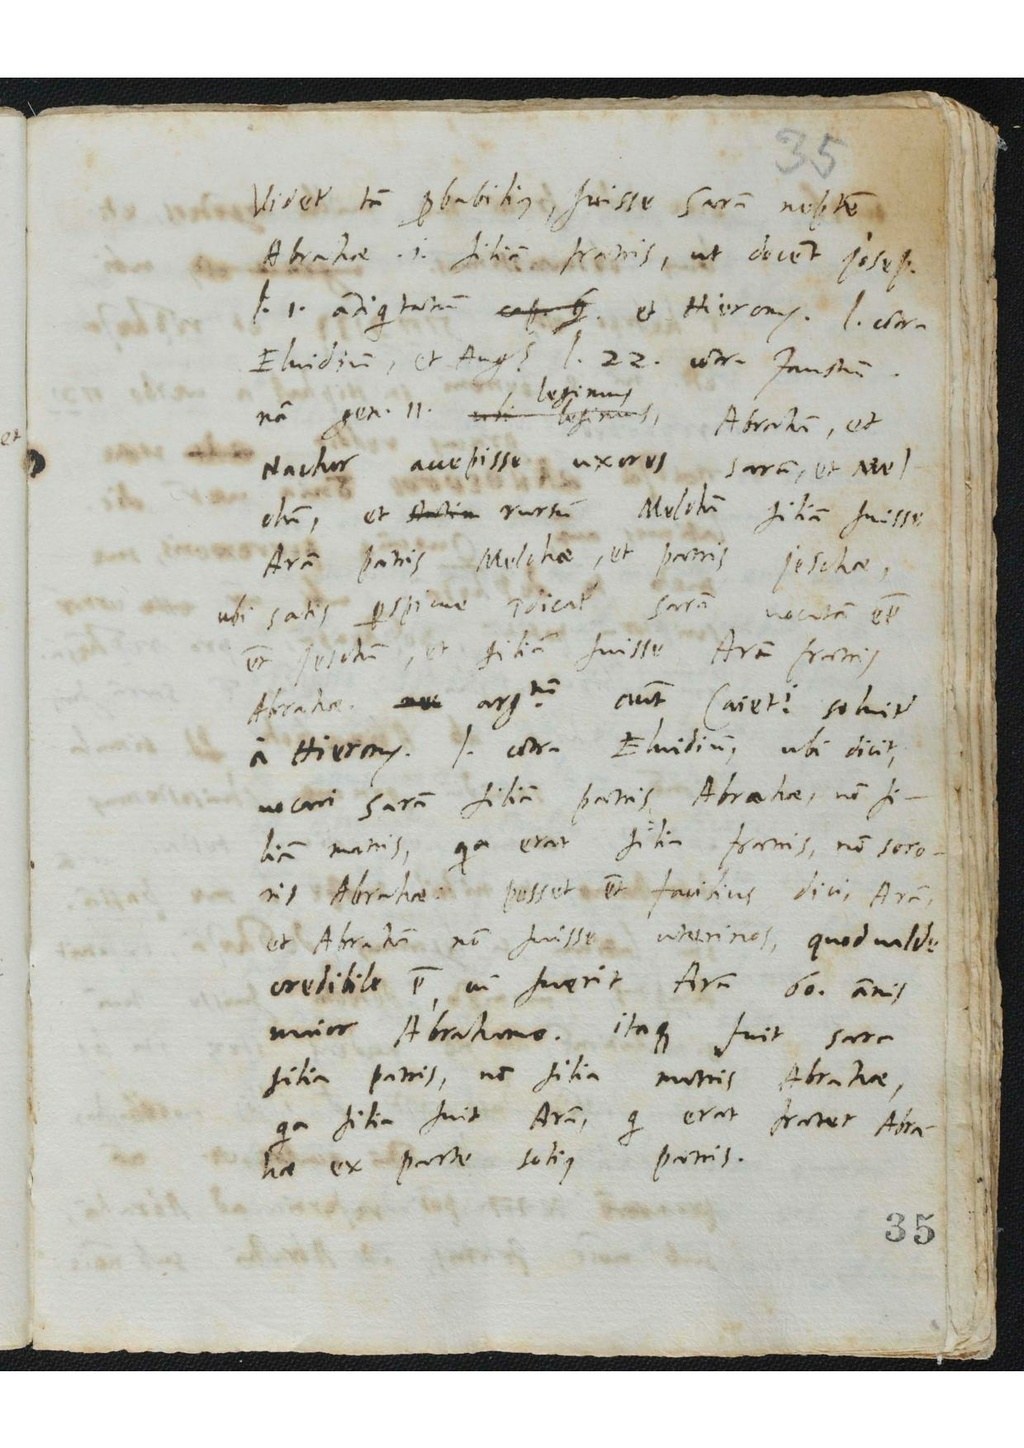 35
Videt' tñ p̱babiliꝰ, fuisse Sarā neptē
Abrahæ .i. filiã fratris, ut docēt Josep.
l. 1. ātiq̃tatũ cap. 6. et Hierony. l. cõtra
Eluidiũ, et Aug.s l. 22. cõtra Faustũ.
nã gen. 11. ubi legimus, legimus Abrahã, et
Nachor accepisse uxores Sarã, et Mel
chã, et rursũ Melchã filiã fuisse
Arã patris Melchæ, et patris Jeschæ,
ubi satis p̱spicue ĩdicat' Sarã uocatã eē
ēt Jeschã, et filiã fuisse Arã fratris
Abrahæ. argtũ aũt Caiet.i soluit'
à Hierony. l. cõtra Eluidiũ, ubi dicit,
uocari Sarã filiã patris Abrahæ, nõ fi-
liã matris, q̃a erat filia fratris, nõ soro-
ris Abrahæ. posset ēt facilius dici, Arã,
et Abrahã nõ fuisse uterinos, quod ualde
credibile ē, cũ fuerit Arã 60. ãnis
maior Abrahamo. itaq̃ fuit Sara
filia patris, nõ filia matris Abrahæ,
q̃a filia fuit Arã, q̃ erat frater Abra
hæ ex parte soliꝰ patris.
35